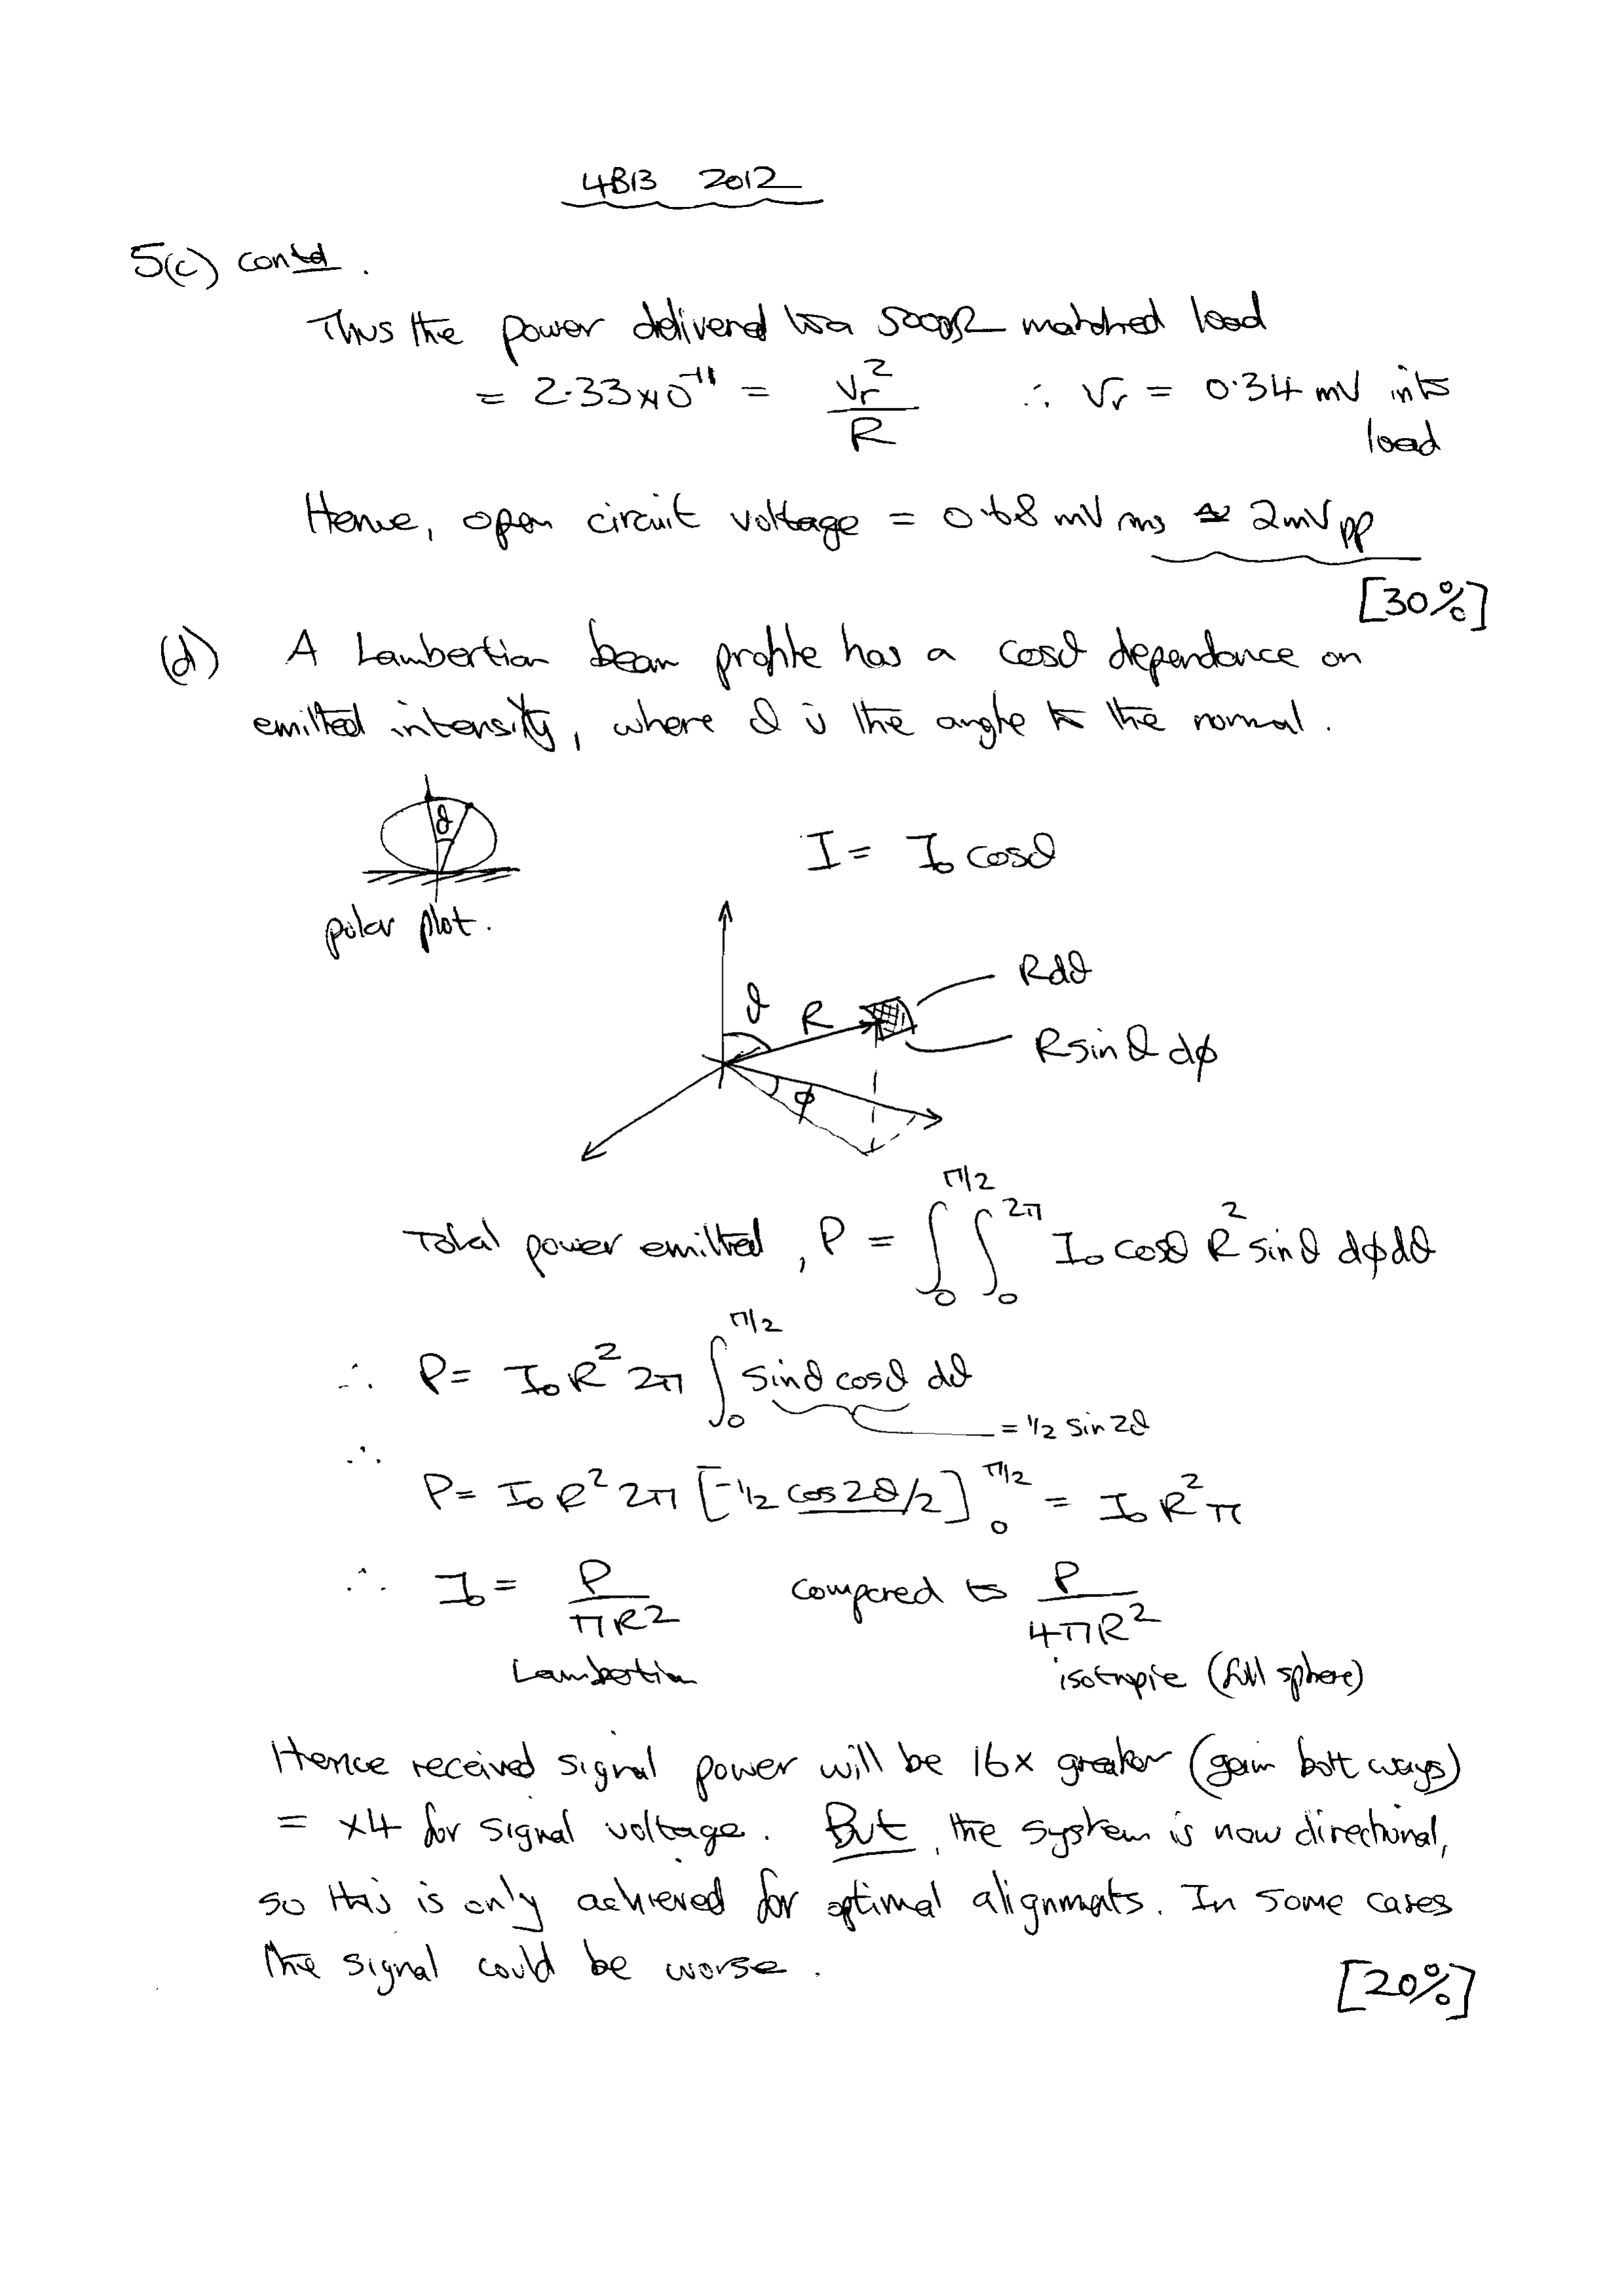 4B13 2012
5(c) contd.
Thus the power delivered to a 5000Ω matched load
= 2.33×10⁻¹¹ = Vr²/R ∴ Vr = 0.34 mV into load
Hence, open circuit voltage = 0.68 mV rms ≃ 2mVpp
[30%]
(d) A Lambertian beam profile has a cosθ dependance on
emitted intensity, where θ is the angle to the normal.
θ
I = I₀ cosθ
polar plot.
Rdθ
θ R
Rsinθ dφ
φ
Total power emitted, P = ∫₀^π/2 ∫₀^2π I₀ cosθ R² sinθ dφdθ
∴ P = I₀R² 2π ∫₀^π/2 sinθ cosθ dθ
= ½ sin2θ
∴
P = I₀R² 2π [-½ cos2θ/2]₀^π/2 = I₀R²π
∴ I₀ = P/πR² compared to P/4πR²
Lambertian isotropic (full sphere)
Hence received signal power will be 16x greater (gain both ways)
= x4 for signal voltage. But, the system is now directional,
so this is only achieved for optimal alignments. In some cases
the signal could be worse.
[20%]